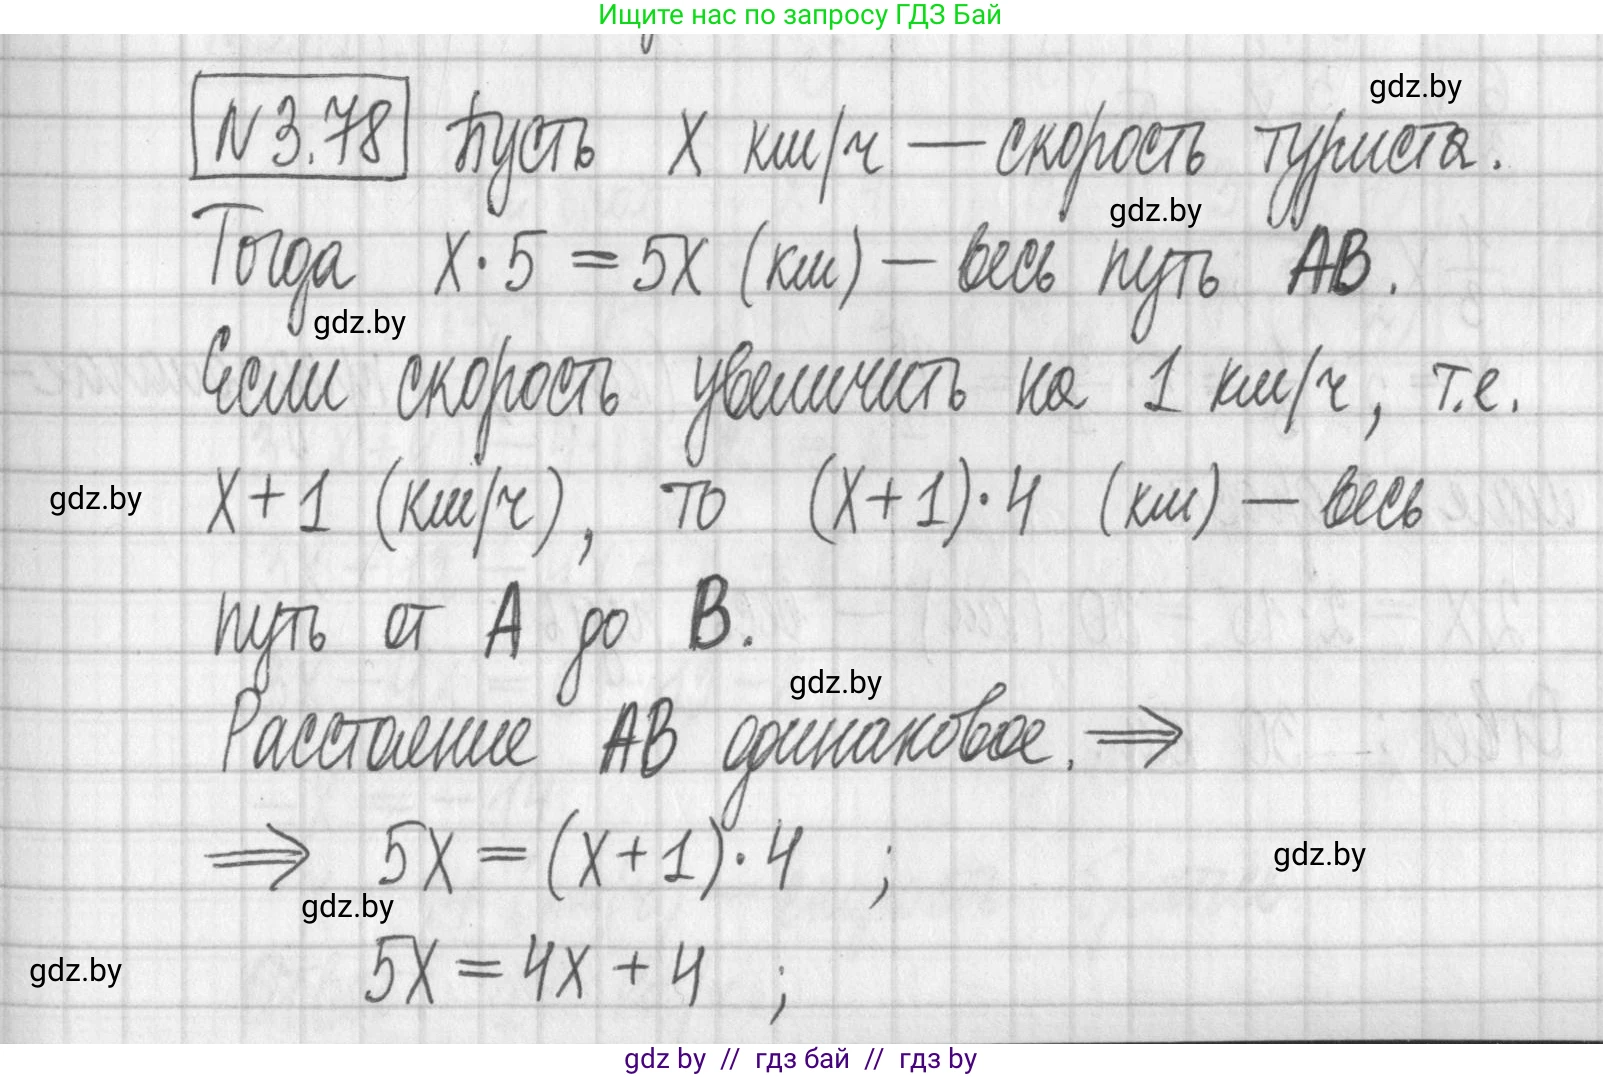 Ищите нас по запросу ГДЗ Бай
gdz.by
N 3.78 Пусть x км/ч — скорость туриста.
gdz.by
Тогда x · 5 = 5x (км) — весь путь AB.
gdz.by
Если скорость увеличить на 1 км/ч, т.е.
gdz.by
x + 1 (км/ч), то (x + 1) · 4 (км) — весь
путь от A до B.
gdz.by
Расстояние AB одинаковое. ⇒
⇒ 5x = (x + 1) · 4 ;
gdz.by
gdz.by
5x = 4x + 4 ;
gdz.by
gdz by // гдз бай // гдз by